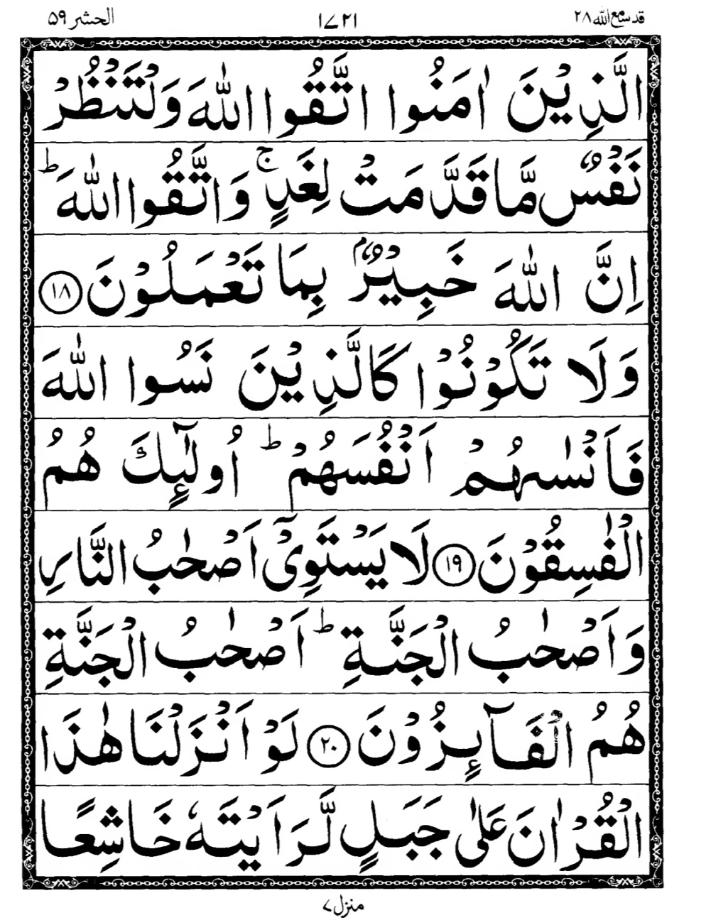 قد سمع الله ٢٨
١٧٢١
الحشر ٥٩
الَّذِيْنَ اٰمَنُوا اتَّقُوا اللّٰهَ وَلْتَنْظُرْ
نَفْسٌ مَّا قَدَّمَتْ لِغَدٍ ۚ وَاتَّقُوا اللّٰهَ ؕ
اِنَّ اللّٰهَ خَبِيْرٌۢ بِمَا تَعْمَلُوْنَ ﴿١٨﴾
وَلَا تَكُوْنُوْا كَالَّذِيْنَ نَسُوا اللّٰهَ
فَاَنْسٰىهُمْ اَنْفُسَهُمْ ؕ اُولٰٓئِكَ هُمُ
الْفٰسِقُوْنَ ﴿١٩﴾ لَا يَسْتَوِىْٓ اَصْحٰبُ النَّارِ
وَاَصْحٰبُ الْجَنَّةِ ؕ اَصْحٰبُ الْجَنَّةِ
هُمُ الْفَآئِزُوْنَ ﴿٢٠﴾ لَوْ اَنْزَلْنَا هٰذَا
الْقُرْاٰنَ عَلٰى جَبَلٍ لَّرَاَيْتَهٗ خَاشِعًا
منزل ٧